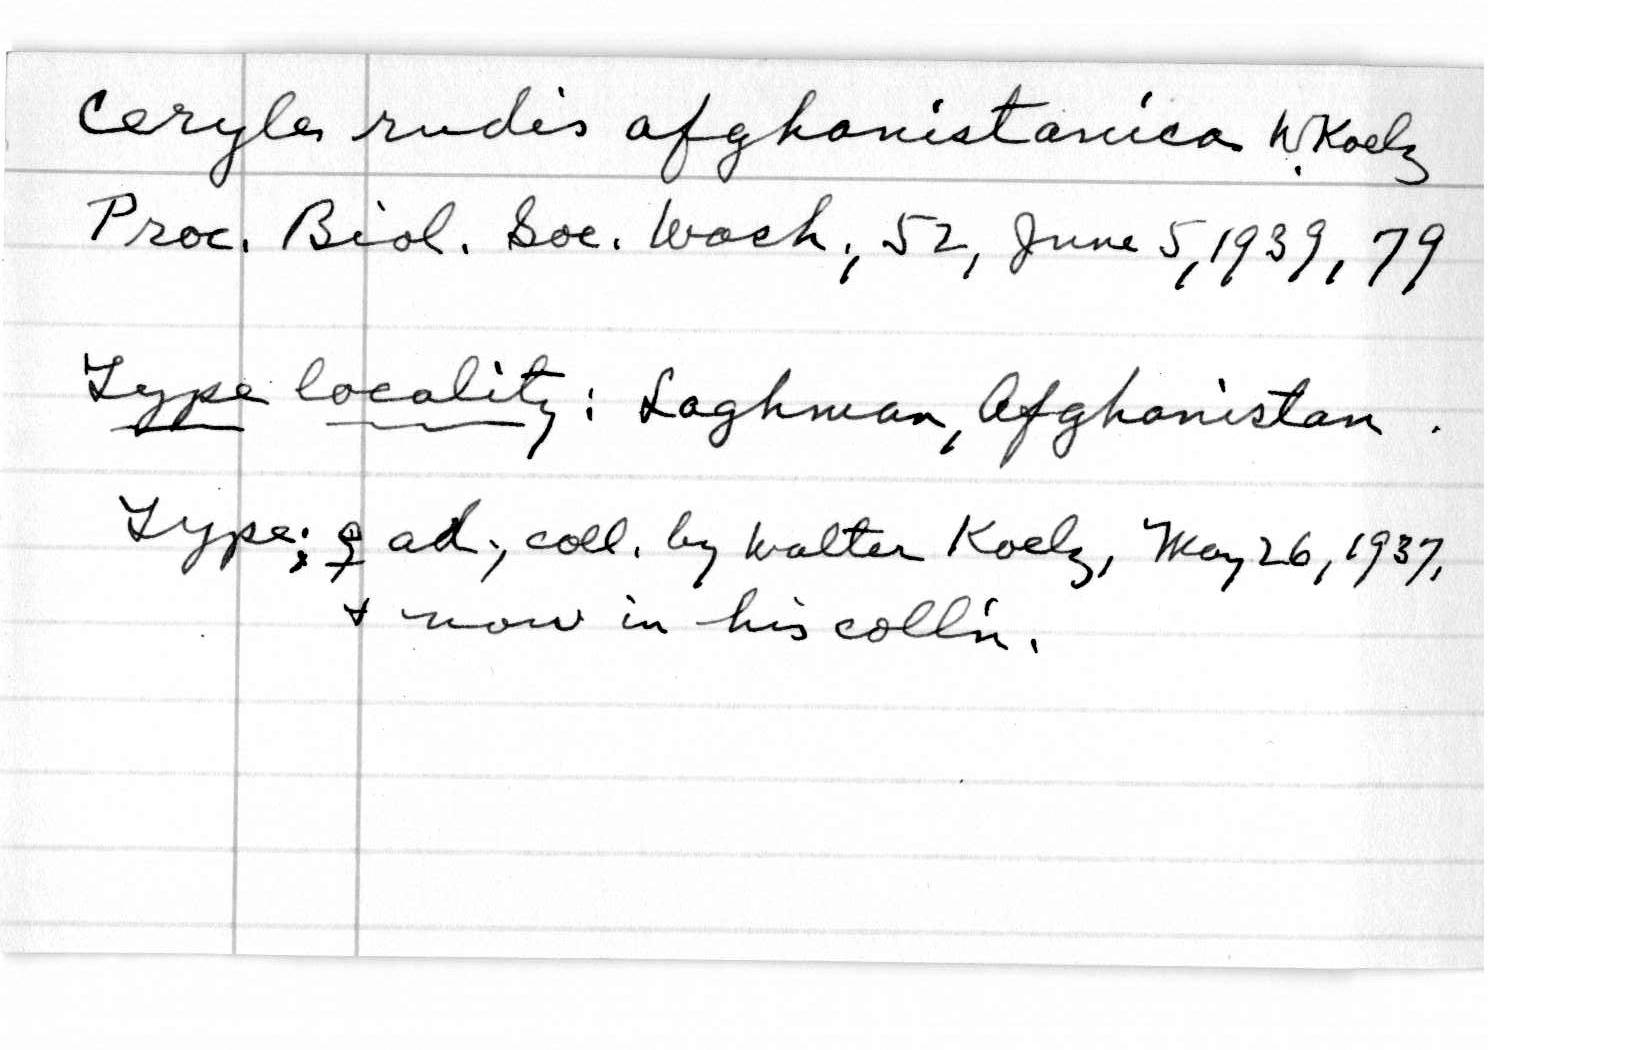 Ceryle rudis afghanistanica W. Koelz
Proc. Biol. Soc. Wash., 52, June 5, 1939, 79
Type locality: Laghman, Afghanistan.
Type: ♀ ad., coll. by Walter Koelz, May 26, 1937,
+ now in his coll'n.